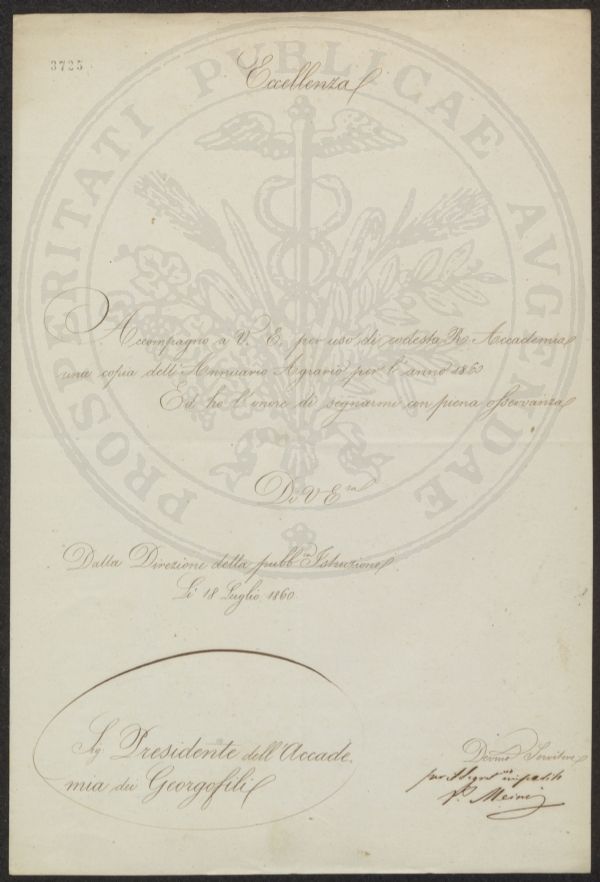 3725
Eccellenza
PROSPERITATI PUBLICAE AVGENDAE
Accompagno a V. E. per uso di codesta R. Accademia
una copia dell'Annuario Agrario per l'anno 1860
Ed ho l'onore di segnarmi con piena osservanza
Di V. E.za
Dalla Direzione della pubb.ca Istruzione
Li 18 Luglio 1860
Sig. Presidente dell'Accade.
mia dei Georgofili
Devmo Servitore
impedito
P. Meini